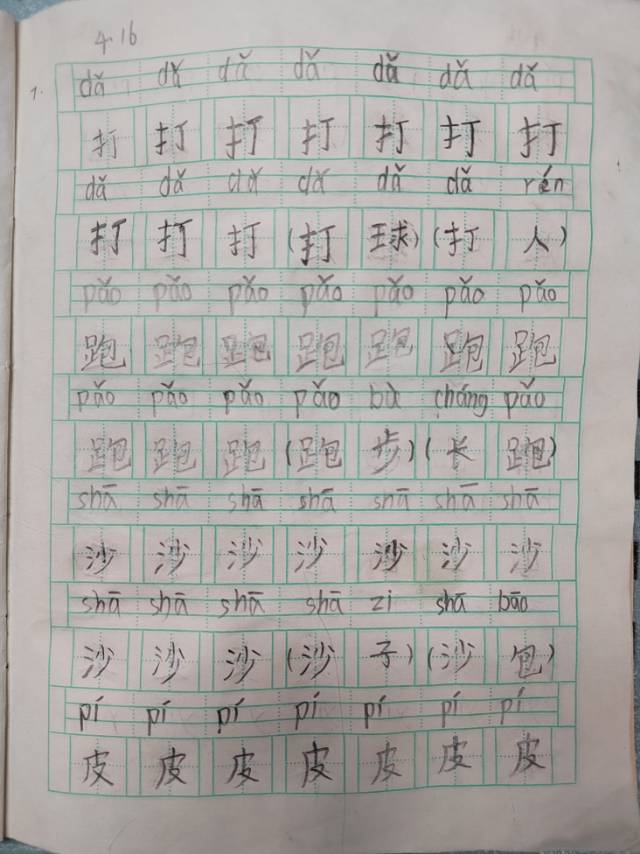 4.16
1.
dǎ dǎ dǎ dǎ dǎ dǎ dǎ
打 打 打 打 打 打 打
dǎ dǎ dǎ dǎ dǎ dǎ rén
打 打 打 (打 球) (打 人)
pǎo pǎo pǎo pǎo pǎo pǎo pǎo
跑 跑 跑 跑 跑 跑 跑
pǎo pǎo pǎo pǎo bù cháng pǎo
跑 跑 跑 (跑 步) (长 跑)
shā shā shā shā shā shā shā
沙 沙 沙 沙 沙 沙 沙
shā shā shā shā zi shā bāo
沙 沙 沙 (沙 子) (沙 包)
pí pí pí pí pí pí pí
皮 皮 皮 皮 皮 皮 皮